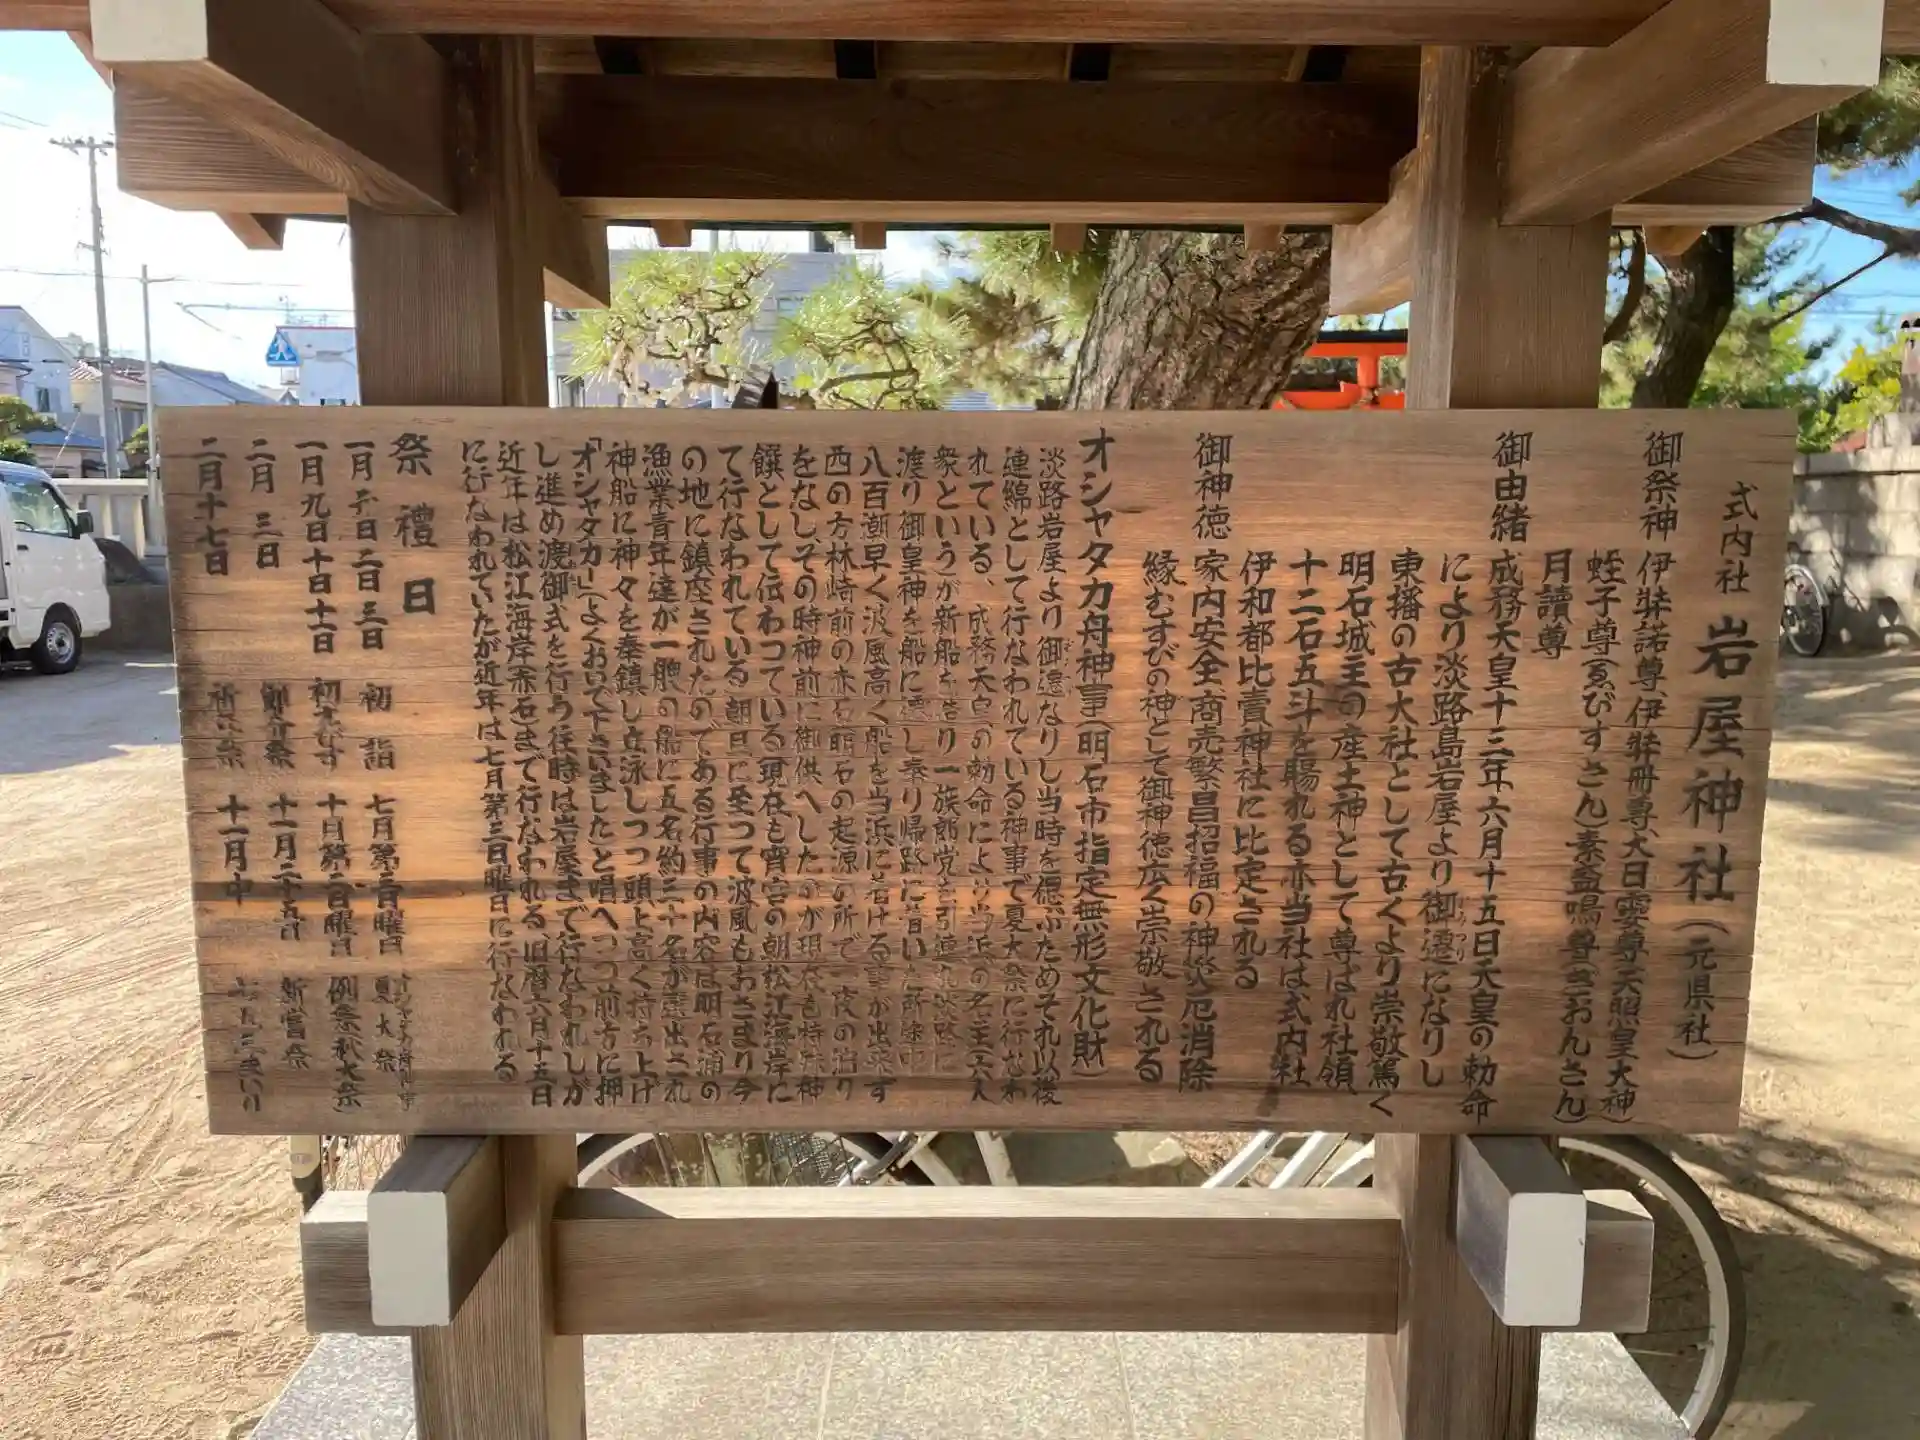 式内社 岩屋神社(元県社)
御祭神 伊弉諾尊、伊弉冊尊、大日孁尊(天照皇大神)
蛭子尊(ゑびすさん)素盞鳴尊(ぎおんさん)
月讀尊
御由緒 成務天皇十三年六月十五日天皇の勅命
により淡路島岩屋より御遷になりし
東播の古大社として古くより崇敬篤く
明石城主の産土神として尊ばれ社領
十二石五斗を賜れる亦当社は式内社
伊和都比賣神社に比定される
御神徳 家内安全、商売繁昌招福の神、災厄消除
縁むすびの神として御神徳広く崇敬される
オシャタカ舟神事(明石市指定無形文化財)
淡路岩屋より御遷なりし当時を偲ぶためそれ以後
連綿として行なわれている神事で夏大祭に行なわ
れている、成務天皇の勅命により当浜の名主(六人
衆というが新船を造り一族郎党を引連れ淡路に
渡り御皇神を船に遷し奉り帰路に着いた所途中
八百潮早く波風高く船を当浜に着ける事が出来ず
西の方林崎前の赤石(明石の起源)の所で一夜の泊り
をなし、その時神前に御供へしたのが現在も特殊神
饌として伝わつている現在も宵宮の朝松江海岸に
て行なわれている)朝日に至つて波風もおさまり今
の地に鎮座されたのである行事の内容は明石浦の
漁業青年達が一艘の船に五名約三十名が選出され
神船に神々を奉鎮し立泳しつつ頭上高く持ち上げ
「オシャタカー」(よくおいで下さいました)と唱へつつ前方に押
し進め渡御式を行う往時は岩屋まで行なわれしが
近年は松江海岸(赤石)まで行なわれる旧暦六月十五日
に行なわれていたが近年は七月第三日曜日に行なわれる
祭禮日
一月一日二日三日 初詣 七月第三日曜日 オシャタカ舟神事 夏大祭
一月九日十日十一日 初ゑびす 十月第二日曜日 例祭(秋大祭)
二月三日 節分祭 十一月二十五日 新嘗祭
二月十七日 祈年祭 十一月中 七五三まいり